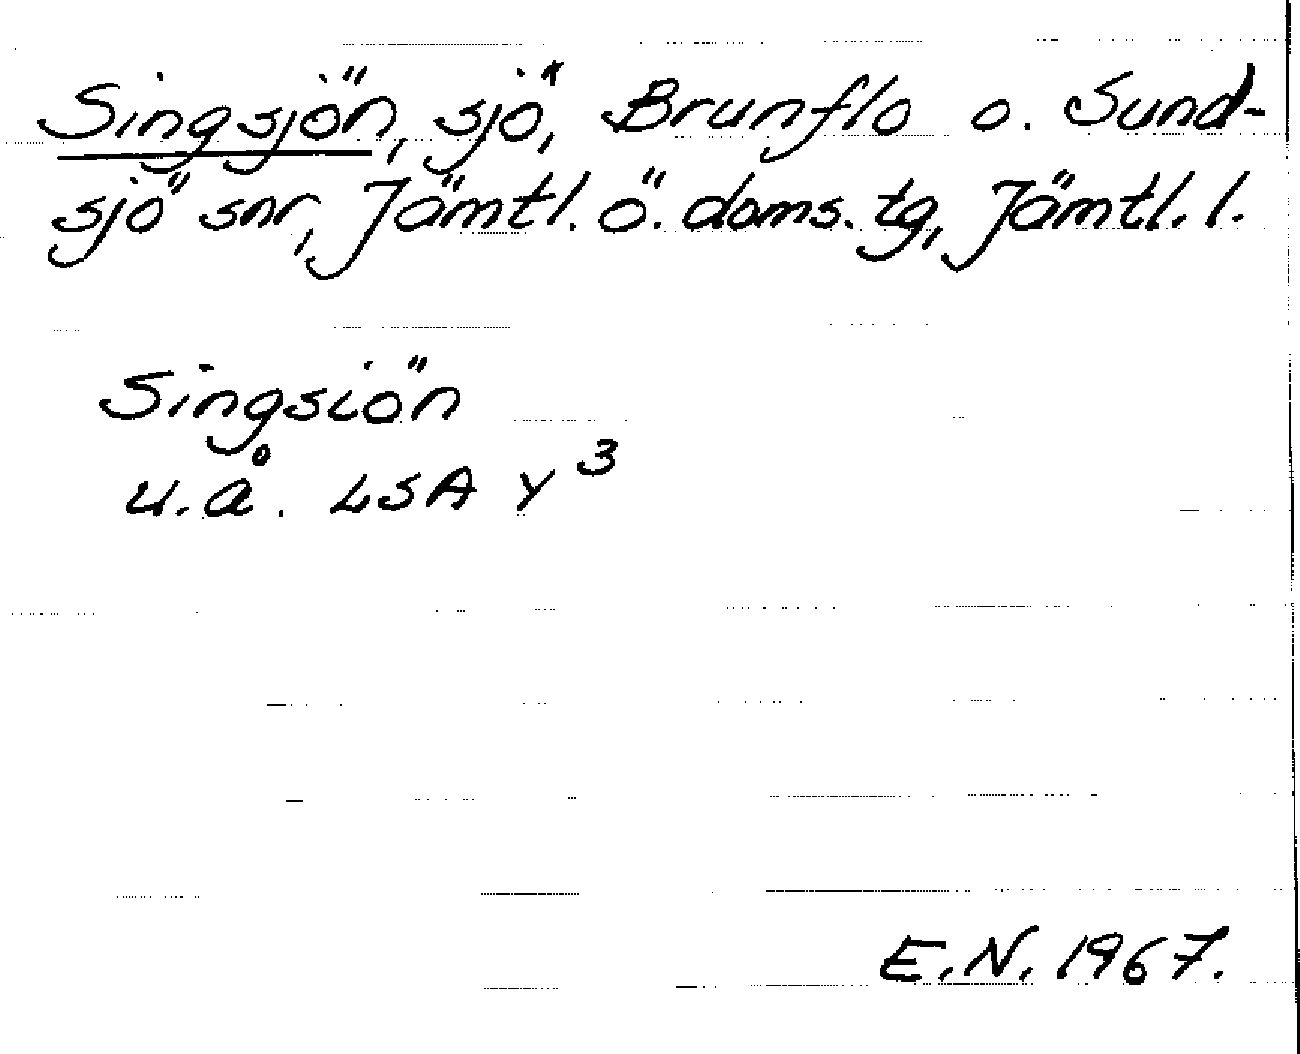 Singsjön, sjö, Brunflo o. Sund-
sjö snr, Jämtl. ö. doms. tg, Jämtl. l.
Singsiön
u.å. LSA Y 3
E.N. 1967.